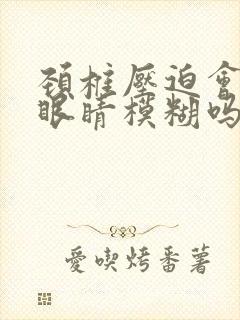 頸椎壓迫會
眼睛模糊嗎
愛喫烤番薯